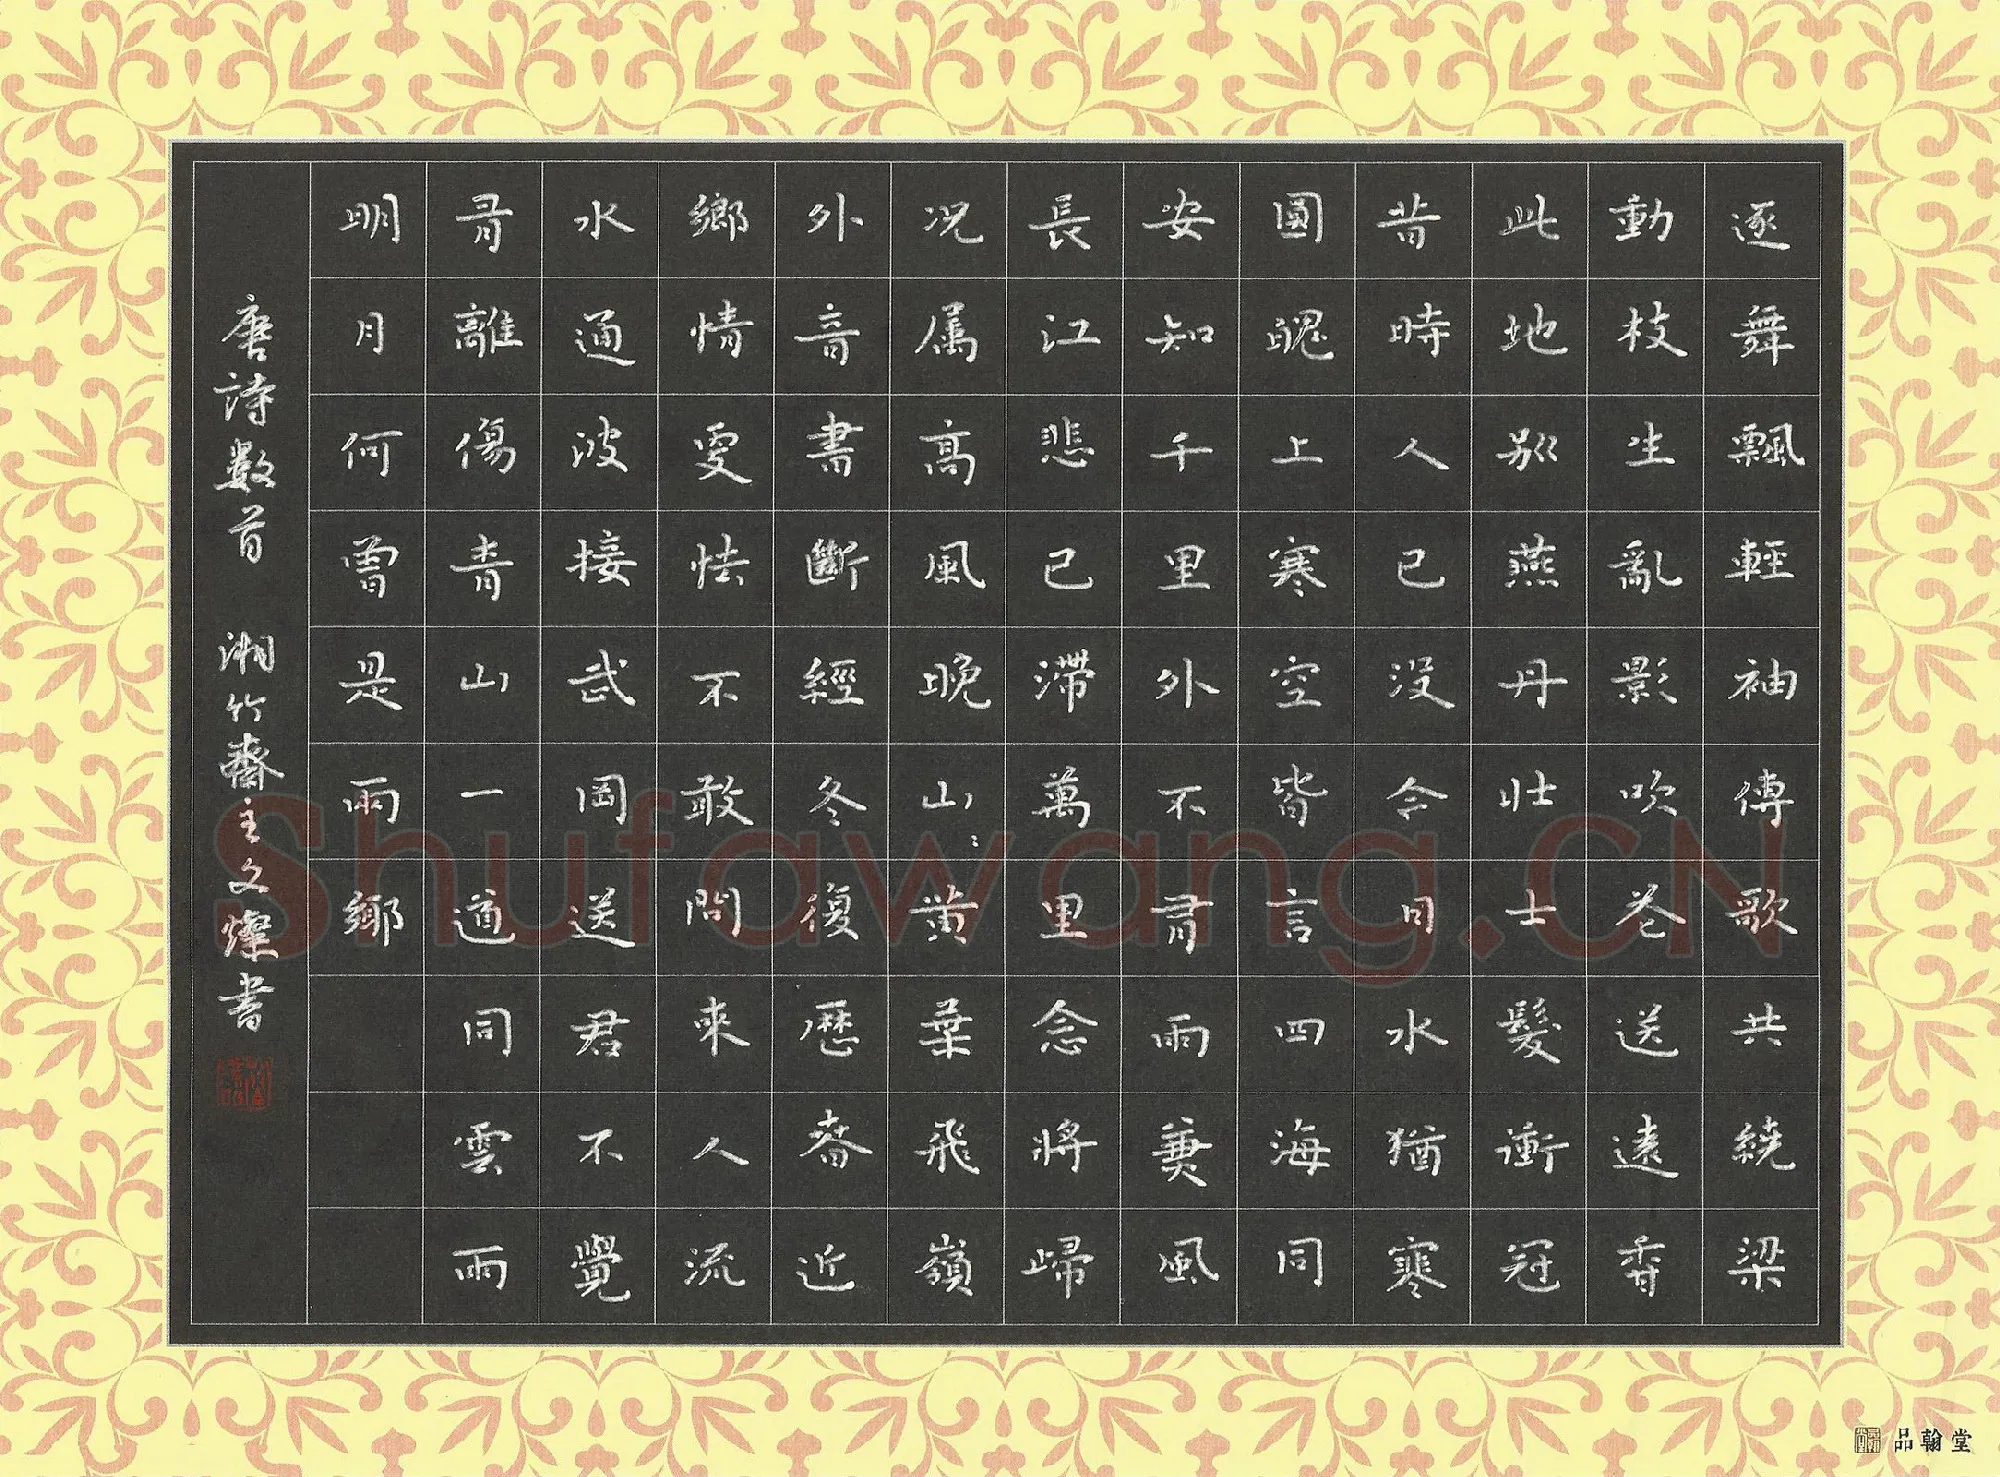 逐舞飄輕袖傳歌共繞梁
動枝生亂影吹花送遠香
此地別燕丹壯士髮衝冠
昔時人已沒今日水猶寒
圓魄上寒空皆言四海同
安知千里外不有雨兼風
長江悲已滯萬里念將歸
況屬高風晚山〻黃葉飛嶺
外音書斷經冬復歷春近
鄉情更怯不敢問來人流
水通波接武岡送君不覺
有離傷青山一道同雲雨
明月何曾是兩鄉
唐詩數首 湘竹齋主文燦書
品翰堂
Shufawang.CN